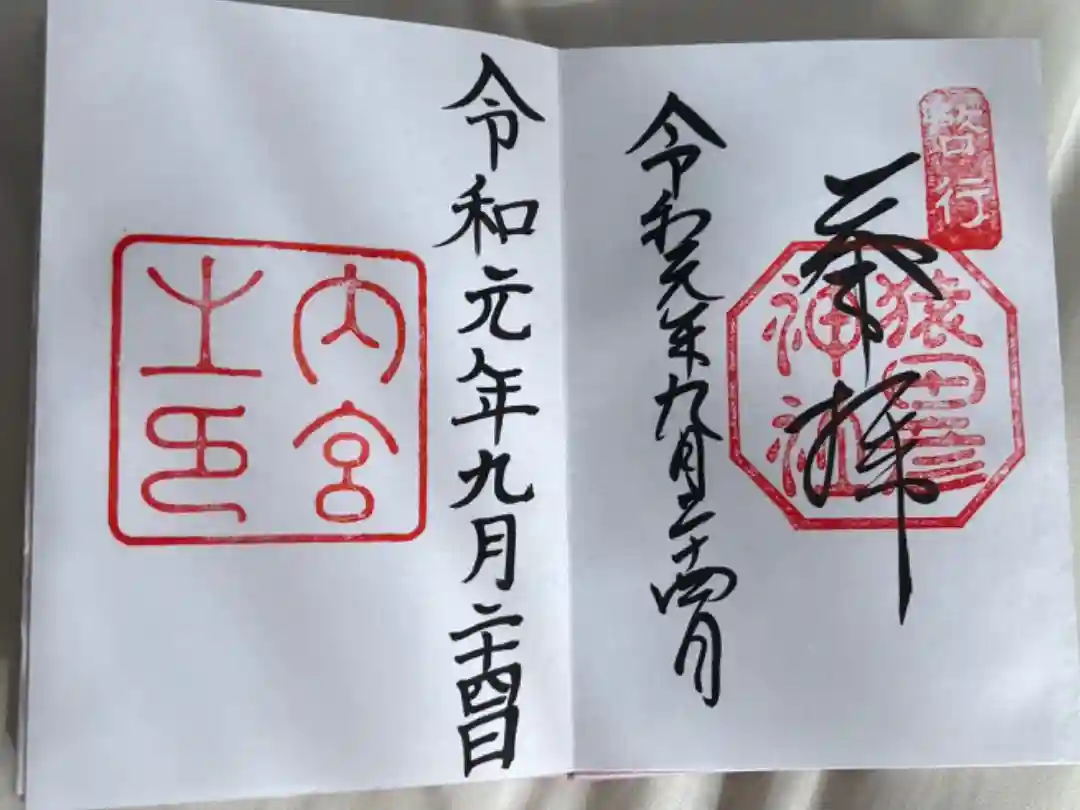 啓行
奉拝
猿田彦
神社
令和元年九月二十四日
令和元年九月二十四日
内宮
之印